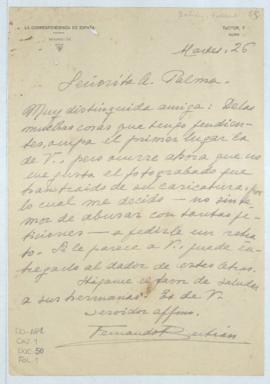 LA CORRESPONDENCIA DE ESPAÑA
FACTOR, 7
MADRID
Martes, 26
Señorita A. Palma.
Muy distinguida amiga: De las
muchas cosas que tengo pendien-
tes, ocupa el primer lugar la
de V., pero ocurre ahora que no
me gusta el fotograbado que
han traido de su caricatura, por
lo cual me decido — no sin te-
mor de abusar con tantas pe-
ticiones — a pedirle un retra-
to. Si le parece a V. puede en-
tregarlo al dador de estas letras.
Hágame el favor de saludar
a sus hermanas. Es de V.
servidor affmo.
Fernando
CO-APL
CAJ 1
DOC 50
FOL 1